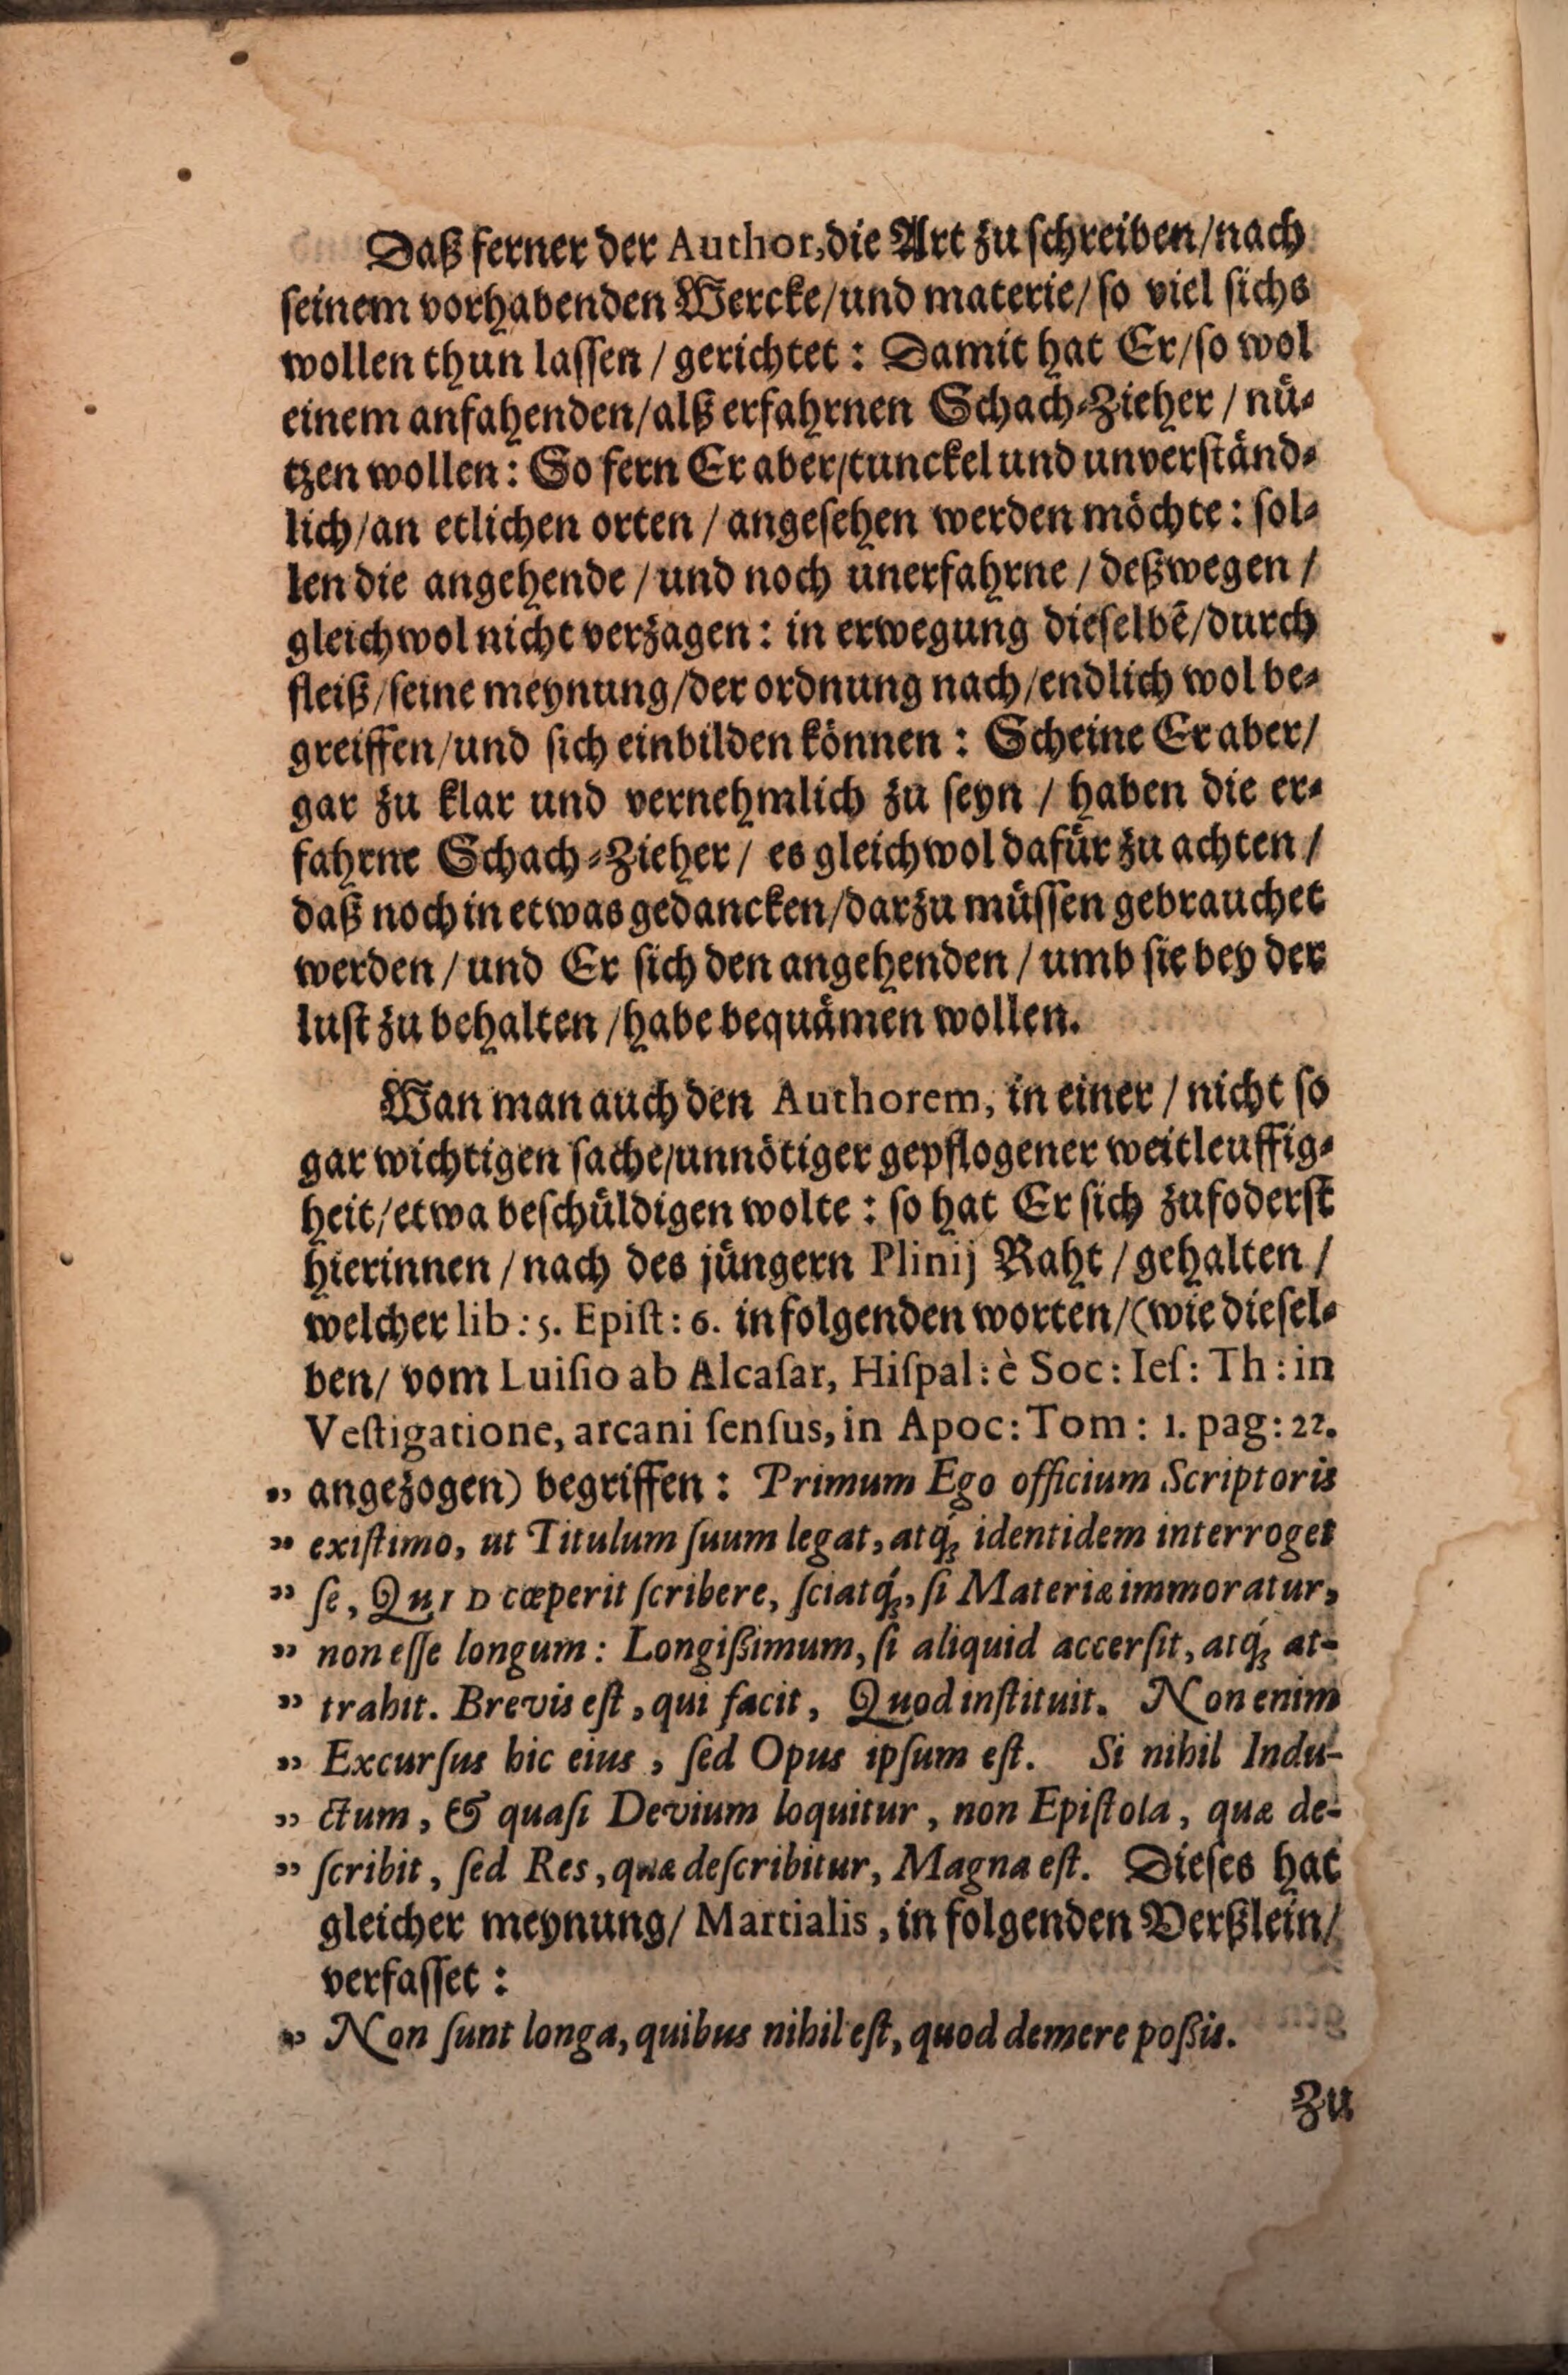 Daß ferner der Author, die Art zu schreiben/nach
seinem vorhabenden Wercke/und materie/so viel sichs
wollen thun lassen / gerichtet: Damit hat Er/so wol
einem anfahenden/alß erfahrnen Schach-Zieher / nü-
tzen wollen: So fern Er aber/tunckel und unverständ-
lich/an etlichen orten / angesehen werden möchte: sol-
len die angehende / und noch unerfahrne / deßwegen /
gleichwol nicht verzagen: in erwegung dieselbē/durch
fleiß/seine meynung/der ordnung nach/endlich wol be-
greiffen/und sich einbilden können: Scheine Er aber/
gar zu klar und vernehmlich zu seyn / haben die er-
fahrne Schach-Zieher / es gleichwol dafür zu achten /
daß noch in etwas gedancken/darzu müssen gebrauchet
werden / und Er sich den angehenden / umb sie bey der
lust zu behalten /habe bequämen wollen.
Wan man auch den Authorem, in einer / nicht so
gar wichtigen sache/unnötiger gepflogener weitleuffig-
heit/etwa beschüldigen wolte: so hat Er sich zufoderst
hierinnen / nach des jüngern Plinij Raht / gehalten /
welcher lib: 5. Epiſt: 6. in folgenden worten/(wie diesel-
ben/ vom Luiſio ab Alcaſar, Hiſpal: è Soc: Ieſ: Th: in
Veſtigatione, arcani ſenſus, in Apoc: Tom: 1. pag: 22.
„ angezogen) begriffen: Primum Ego officium Scriptoris
„ exiſtimo, ut Titulum ſuum legat, atq́ꝫ identidem interroget
„ ſe, QuID cœperit ſcribere, ſciatq́ꝫ, ſi Materiæ immoratur,
„ non eſſe longum: Longiſſimum, ſi aliquid accerſit, atq́ꝫ at-
„ trahit. Brevis eſt, qui facit, Quod inſtituit. Non enim
„ Excurſus hic eius, ſed Opus ipſum eſt. Si nihil Indu-
„ ctum, & quaſi Devium loquitur, non Epiſtola, quæ de-
„ ſcribit, ſed Res, quæ deſcribitur, Magna eſt. Dieses hat
gleicher meynung/ Martialis, in folgenden Verßlein/
verfasset:
„ Non ſunt longa, quibus nihil eſt, quod demere poßis.
Zu